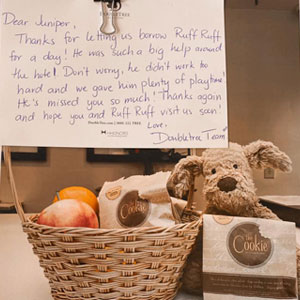 Dear Juniper,
Thanks for letting us borow Ruff Ruff
for a day! He was such a big help around
the hotel. Don't worry, he didn't work too
hard and we gave him plenty of playtime!
He's missed you so much! Thanks again
and hope you and Ruff Ruff visit us soon!
Love,
Doubletree Team
The
Cookie
The
Cookie